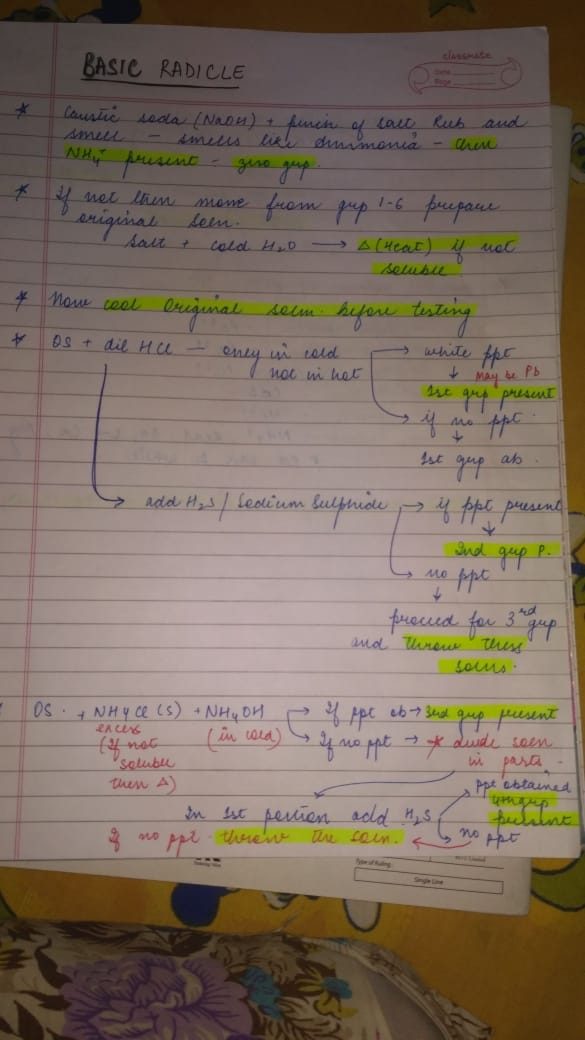 classmate
Date
Page
BASIC RADICLE
* Caustic soda (NaOH) + pinch of salt Rub and
smell - smells like ammonia - then
NH4+ present - zero grp.
* If not then move from grp 1-6 prepare
original soln.
Salt + cold H2O → Δ (Heat) if not
soluble
* Now cool original soln. before testing
* OS + dil HCl - only in cold
not in hot
→ white ppt
↓ May be Pb
1st grp present
→ if no ppt.
↓
1st grp ab.
→ add H2S / Sodium Sulphide → if ppt present
↓
2nd grp P.
→ no ppt
↓
proceed for 3rd grp
and throw these
solns.
OS. + NH4Cl (s) + NH4OH → If ppt ob → 3rd grp present
excess
(If not
soluble
then Δ)
(in cold)
→ If no ppt → * divide soln
in parts.
In 1st portion add H2S
→ ppt obtained
4th grp
present
→ no ppt
If no ppt. throw the soln.
Type of Ruling:
Single Line